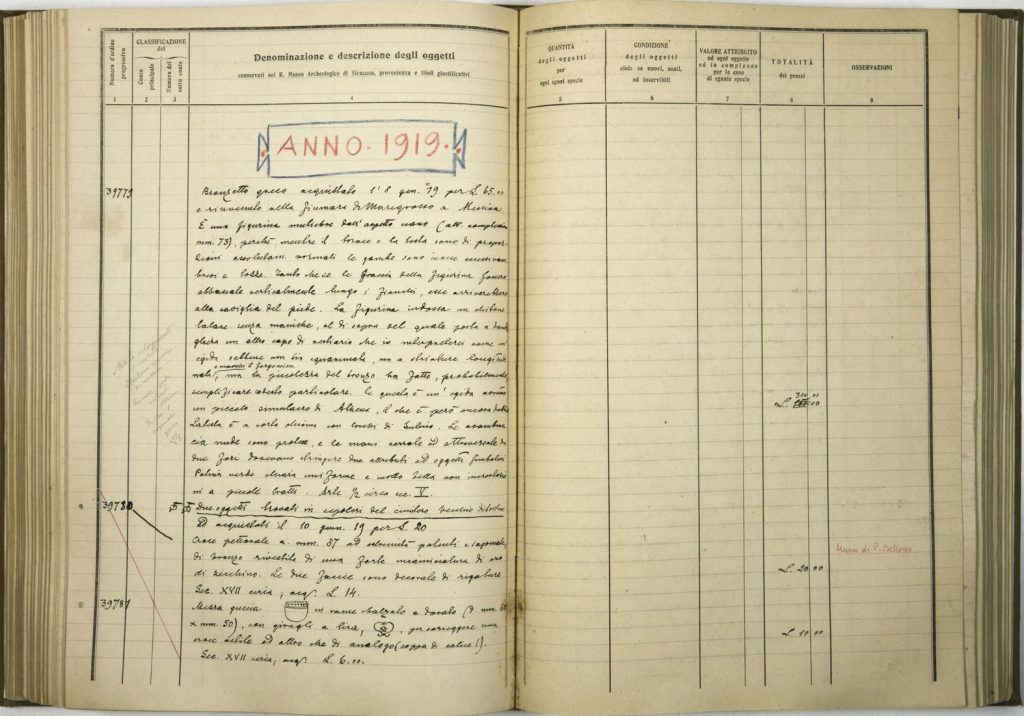 Numero d'ordine progressivo
CLASSIFICAZIONE
del
Conto principale
Numero del sotto conto
Denominazione e descrizione degli oggetti
conservati nel R. Museo Archeologico di Siracusa, provenienza e titoli giustificativi
1 2 3 4
QUANTITÀ
degli oggetti
per
ogni egual specie
5
CONDIZIONE
degli oggetti
cioè: se nuovi, usati,
od inservibili
6
VALORE ATTRIBUITO
ad ogni oggetto
ed in complesso
per le cose
di eguale specie
7
TOTALITÀ
dei prezzi
8
OSSERVAZIONI
9
ANNO. 1919.
39779
Bronzetto greco acquistato l'8 gen. 19 per L. 65.00
e rinvenuto nella fiumara di Maregrosso a Messina
È una figurina muliebre dall'aspetto nano (alt. complessiva
mm. 73), perchè, mentre il torace e la testa sono di propor-
zioni assolutam. normali le gambe sono invece eccessivam.
brevi e tozze. Tanto che se le braccia della figurina fossero
abbassate verticalmente lungo i fianchi, esse arriverebbero
alla caviglia del piede. La figurina indossa un chitone
talare senza maniche, al di sopra del quale porta a
un altro capo di vestiario che io come un'
egida sebbene non sia squamata, ma a striature longitudi-
e manchi il gorgoneion
nali, ma la piccolezza del bronzo ha fatto, probabilmente,
semplificare codesto particolare. Se questa è un'egida avremo
un piccolo simulacro di Athena, il che è però ancora dubbio
La testa è a corta chioma con
nude sono protese, e le mani serrate ed attraversate da
due fori dovevano stringere due attributi od oggetti simbolici
Patina verde chiara uniforme e molto bella con incrostazio-
ni a piccoli tratti. Arte 1/2 circa sec. V.
L. 300.00
39780
55
Due oggetti trovati in sepolcri del cimitero vecchio di
Ed acquistati il 10 genn. 19 per L. 20
Croce pettorale a. mm. 87 ad estremità patenti e sagomate,
di bronzo rivestita di una forte incamiciatura di oro
di zecchino. Le due faccie sono decorate di rigature
Sec. XVII circa; acq. L. 14.
Museo di P. Bellomo
L. 20.00
39781
Mezza guscia in rame sbalzato e dorato (d. mm. 68
x mm. 50), con giragli a lira, per sorreggere una
croce astile od altro che di analogo (coppa di calice!).
Sec. XVII circa; acq. L. 6.00.
L. 10.00